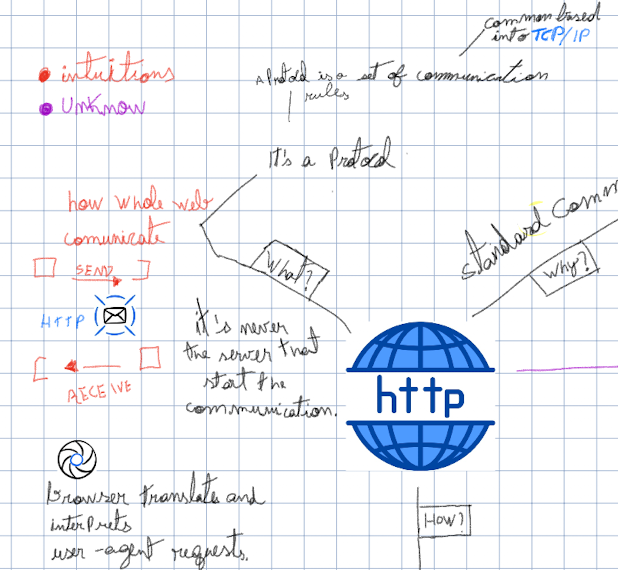 common based
into TCP/IP
intuitions
Unknow
A Protocol is a set of communication
rules
It's a Protocol
how whole web
comunicate
SEND
HTTP
RECEIVE
What?
standard comm
Why?
it's never
the server that
start the
communication.
http
browser translate and
interprets
user-agent requests.
How?